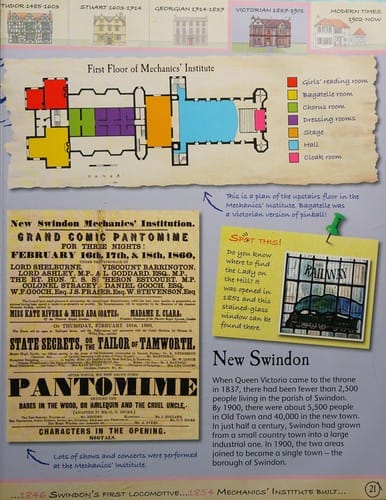 TUDOR 1485-1603
STUART 1603-1714
GEORGIAN 1714-1837
VICTORIAN 1837-1901
MODERN TIMES
1902-NOW
First Floor of Mechanics' Institute
Girls' reading room
Bagatelle room
Chorus room
Dressing rooms
Stage
Hall
Cloak room
This is a plan of the upstairs floor in the
Mechanics' Institute. Bagatelle was
a Victorian version of pinball!
New Swindon Mechanics' Institution.
GRAND COMIC PANTOMIME
FOR THREE NIGHTS!
FEBRUARY 16th, 17th, & 18th, 1860,
LORD SHELBURNE, VISCOUNT BARRINGTON,
LORD ASHLEY, M.P., A L GODDARD ESQ., M.P.
THE RT. HON. T. S. S. HERON ESTCOURT, M.P.
COLONEL STRACEY, DANIEL GOOCH, ESQ.
W. F. GOOCH, Esq., J. FRASER, Esq., W. STEVENSON, Esq.
MISS KATE RIVERS & MISS ADA OATES. MADAME E. CLARA;
On THURSDAY, FEBRUARY 16th, 1860,
STATE SECRETS, OR THE TAILOR OF TAMWORTH.
PANTOMIME
BABES IN THE WOOD, OR HARLEQUIN AND THE CRUEL UNCLE,
CHARACTERS IN THE OPENING.
MORTALS.
Lots of shows and concerts were performed
at the Mechanics' Institute.
SPOT THIS!
Do you know
where to find
the Lady on
the Hill? It
was opened in
1851 and this
stained-glass
window can be
found there.
RAILWAY
New Swindon
When Queen Victoria came to the throne
in 1837, there had been fewer than 2,500
people living in the parish of Swindon.
By 1900, there were about 5,500 people
in Old Town and 40,000 in the new town.
In just half a century, Swindon had grown
from a small country town into a large
industrial one. In 1900, the two areas
joined to become a single town – the
borough of Swindon.
...1846 SWINDON'S FIRST LOCOMOTIVE...1854 MECHANICS' INSTITUTE BUILT...
21